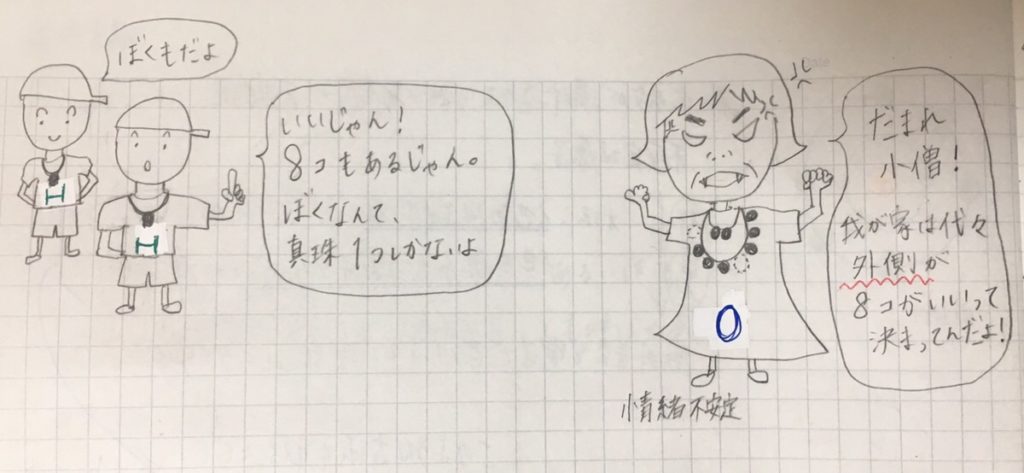 ぼくもだよ
いいじゃん！
8コもあるじゃん。
ぼくなんて、
真珠1つしかないよ
H
H
だまれ
小僧！
我が家は代々
外側が
8コがいいって
決まってんだよ！
O
情緒不安定